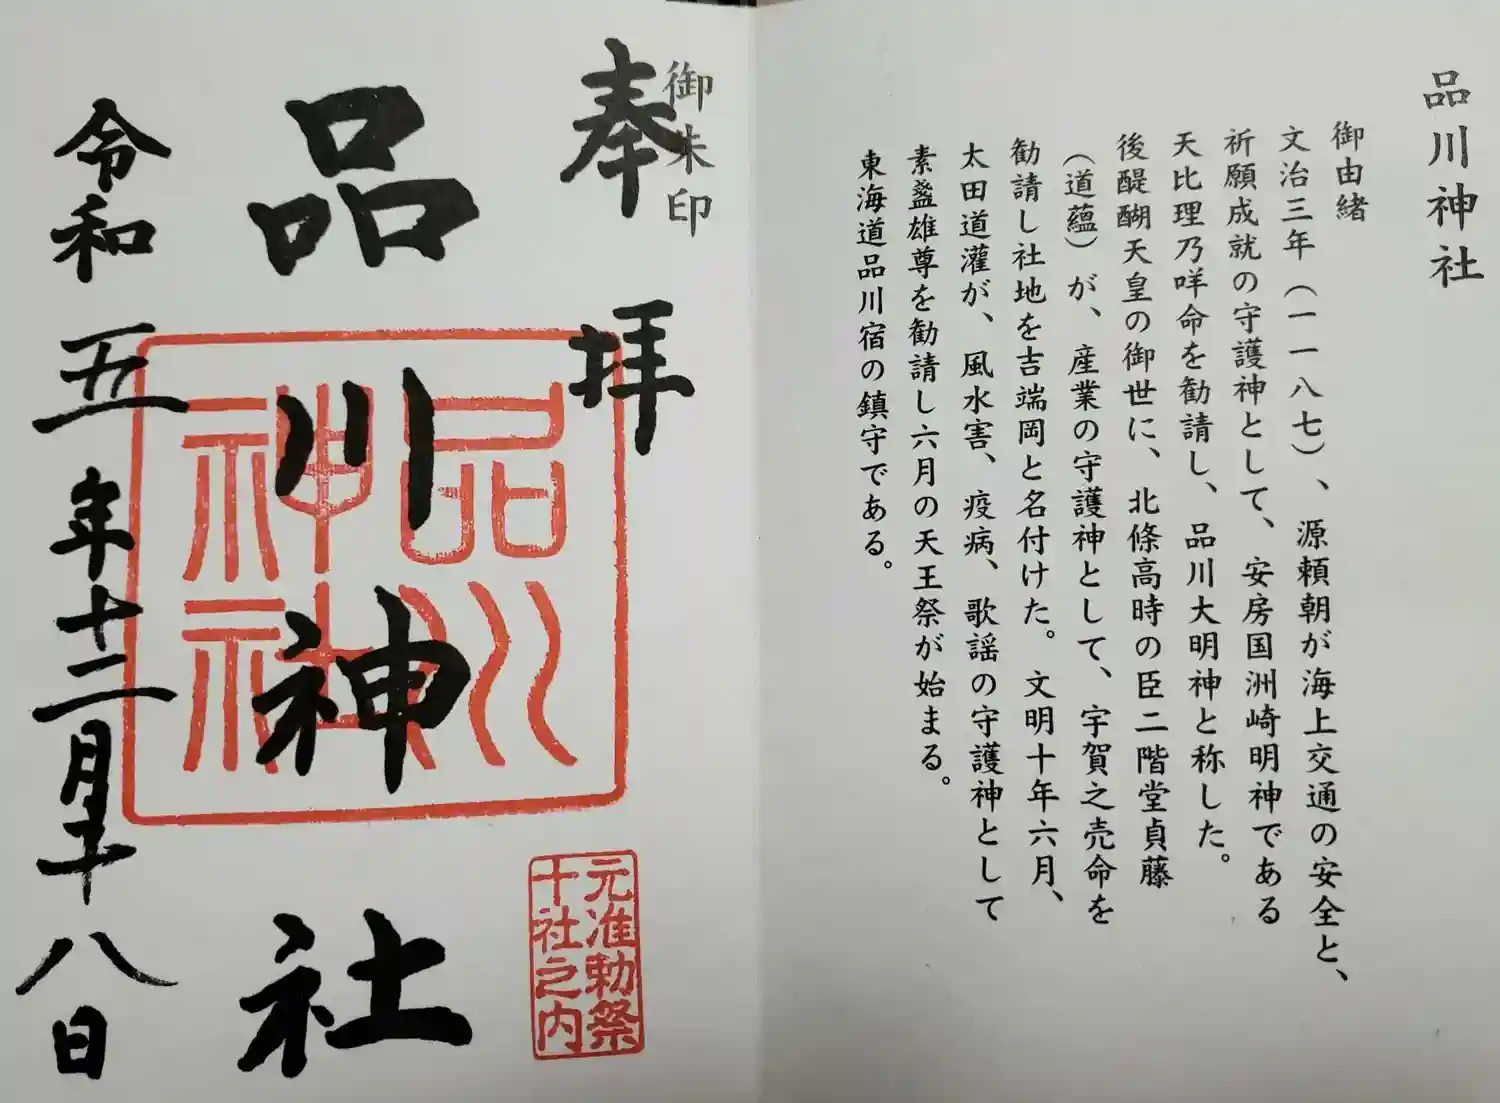 品川神社
御由緒
文治三年（一一八七）、源頼朝が海上交通の安全と、
祈願成就の守護神として、安房国洲崎明神である
天比理乃咩命を勧請し、品川大明神と称した。
後醍醐天皇の御世に、北條高時の臣二階堂貞藤
（道蘊）が、産業の守護神として、宇賀之売命を
勧請し社地を吉端岡と名付けた。文明十年六月、
太田道灌が、風水害、疫病、歌謡の守護神として
素盞雄尊を勧請し六月の天王祭が始まる。
東海道品川宿の鎮守である。
御朱印
奉拝
品川神社
令和五年十二月十八日
品川
神社
元准勅祭
十社之内